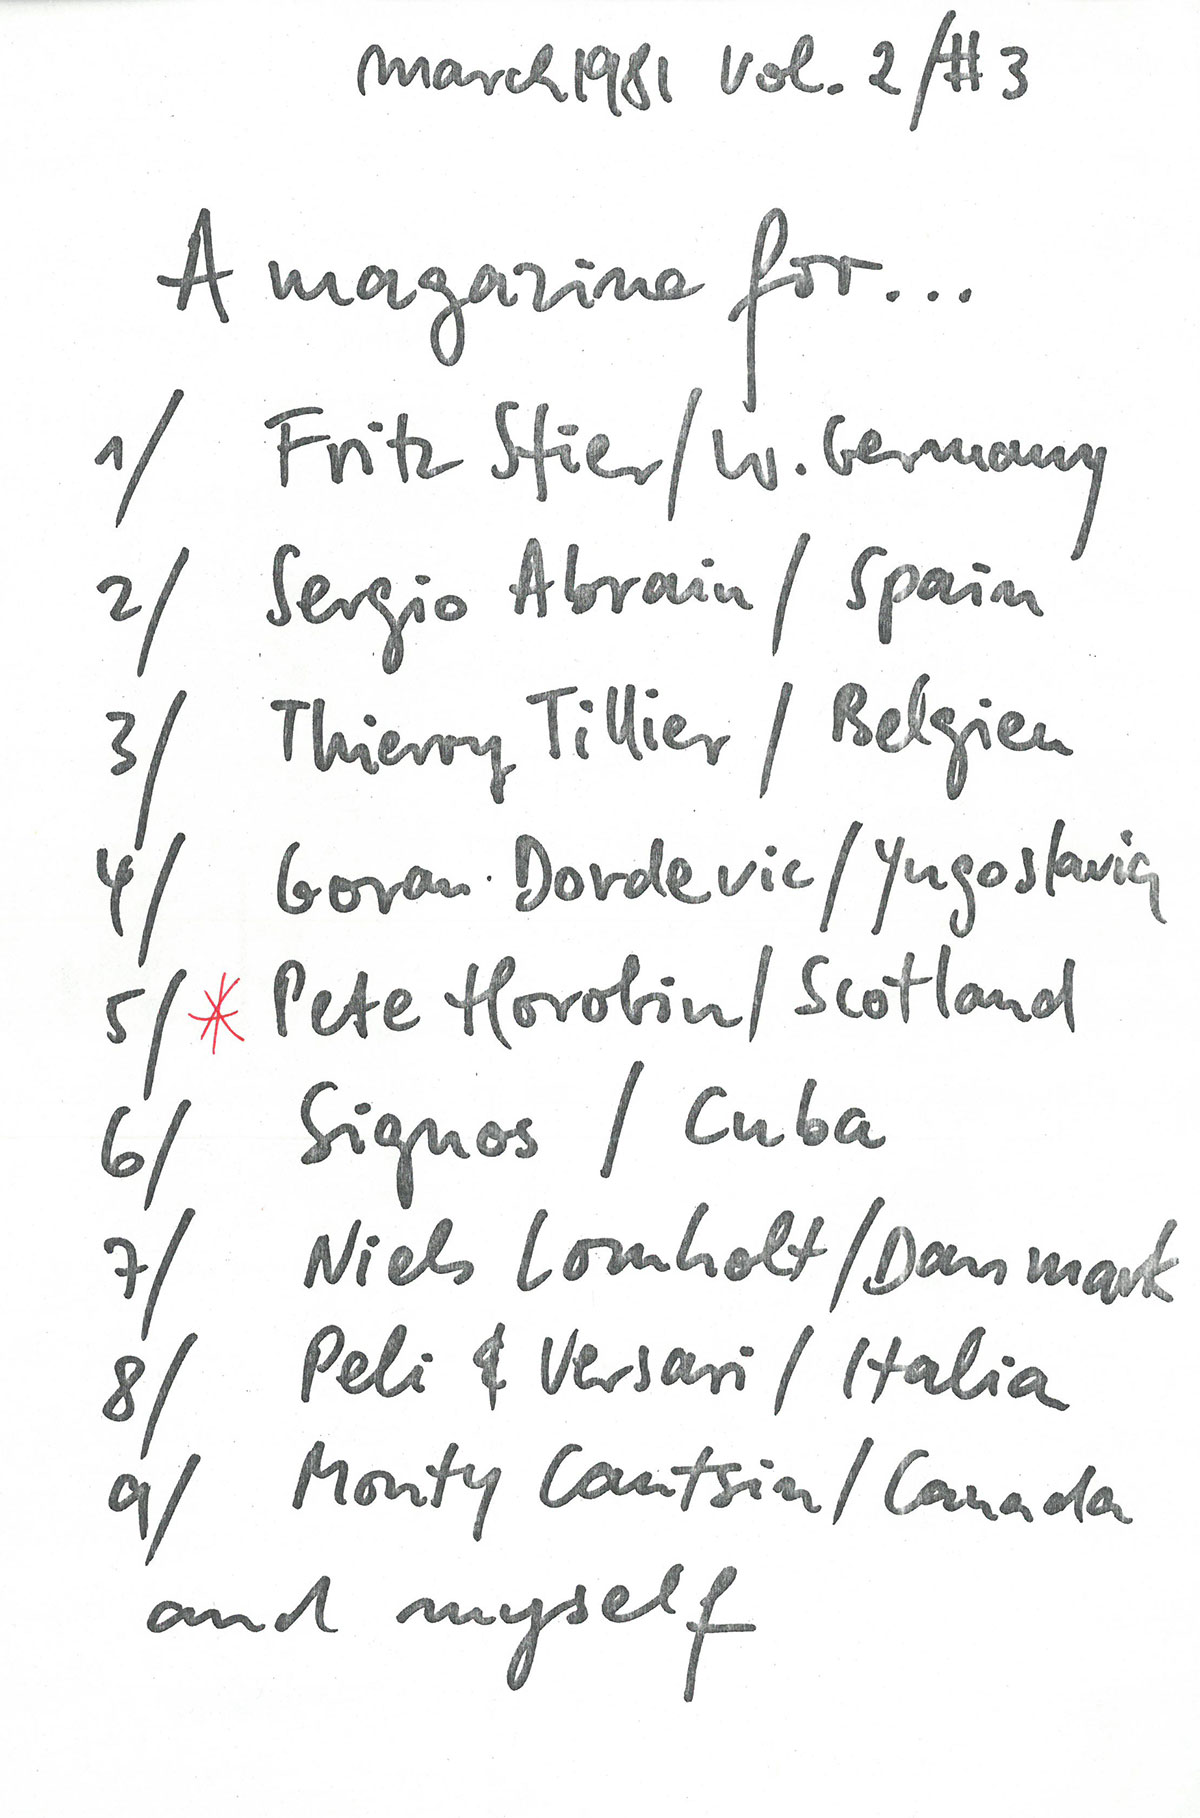 march 1981 Vol. 2/#3
A magazine for...
1/ Fritz Stier/W. Germany
2/ Sergio Abrain/Spain
3/ Thierry Tillier/Belgien
4/ Goran Dordevic/Yugoslavia
5/* Pete Horobin/Scotland
6/ Signos/Cuba
7/ Niels Lomholt/Danmark
8/ Peli & Versari/Italia
9/ Monty Cantsin/Canada
and myself